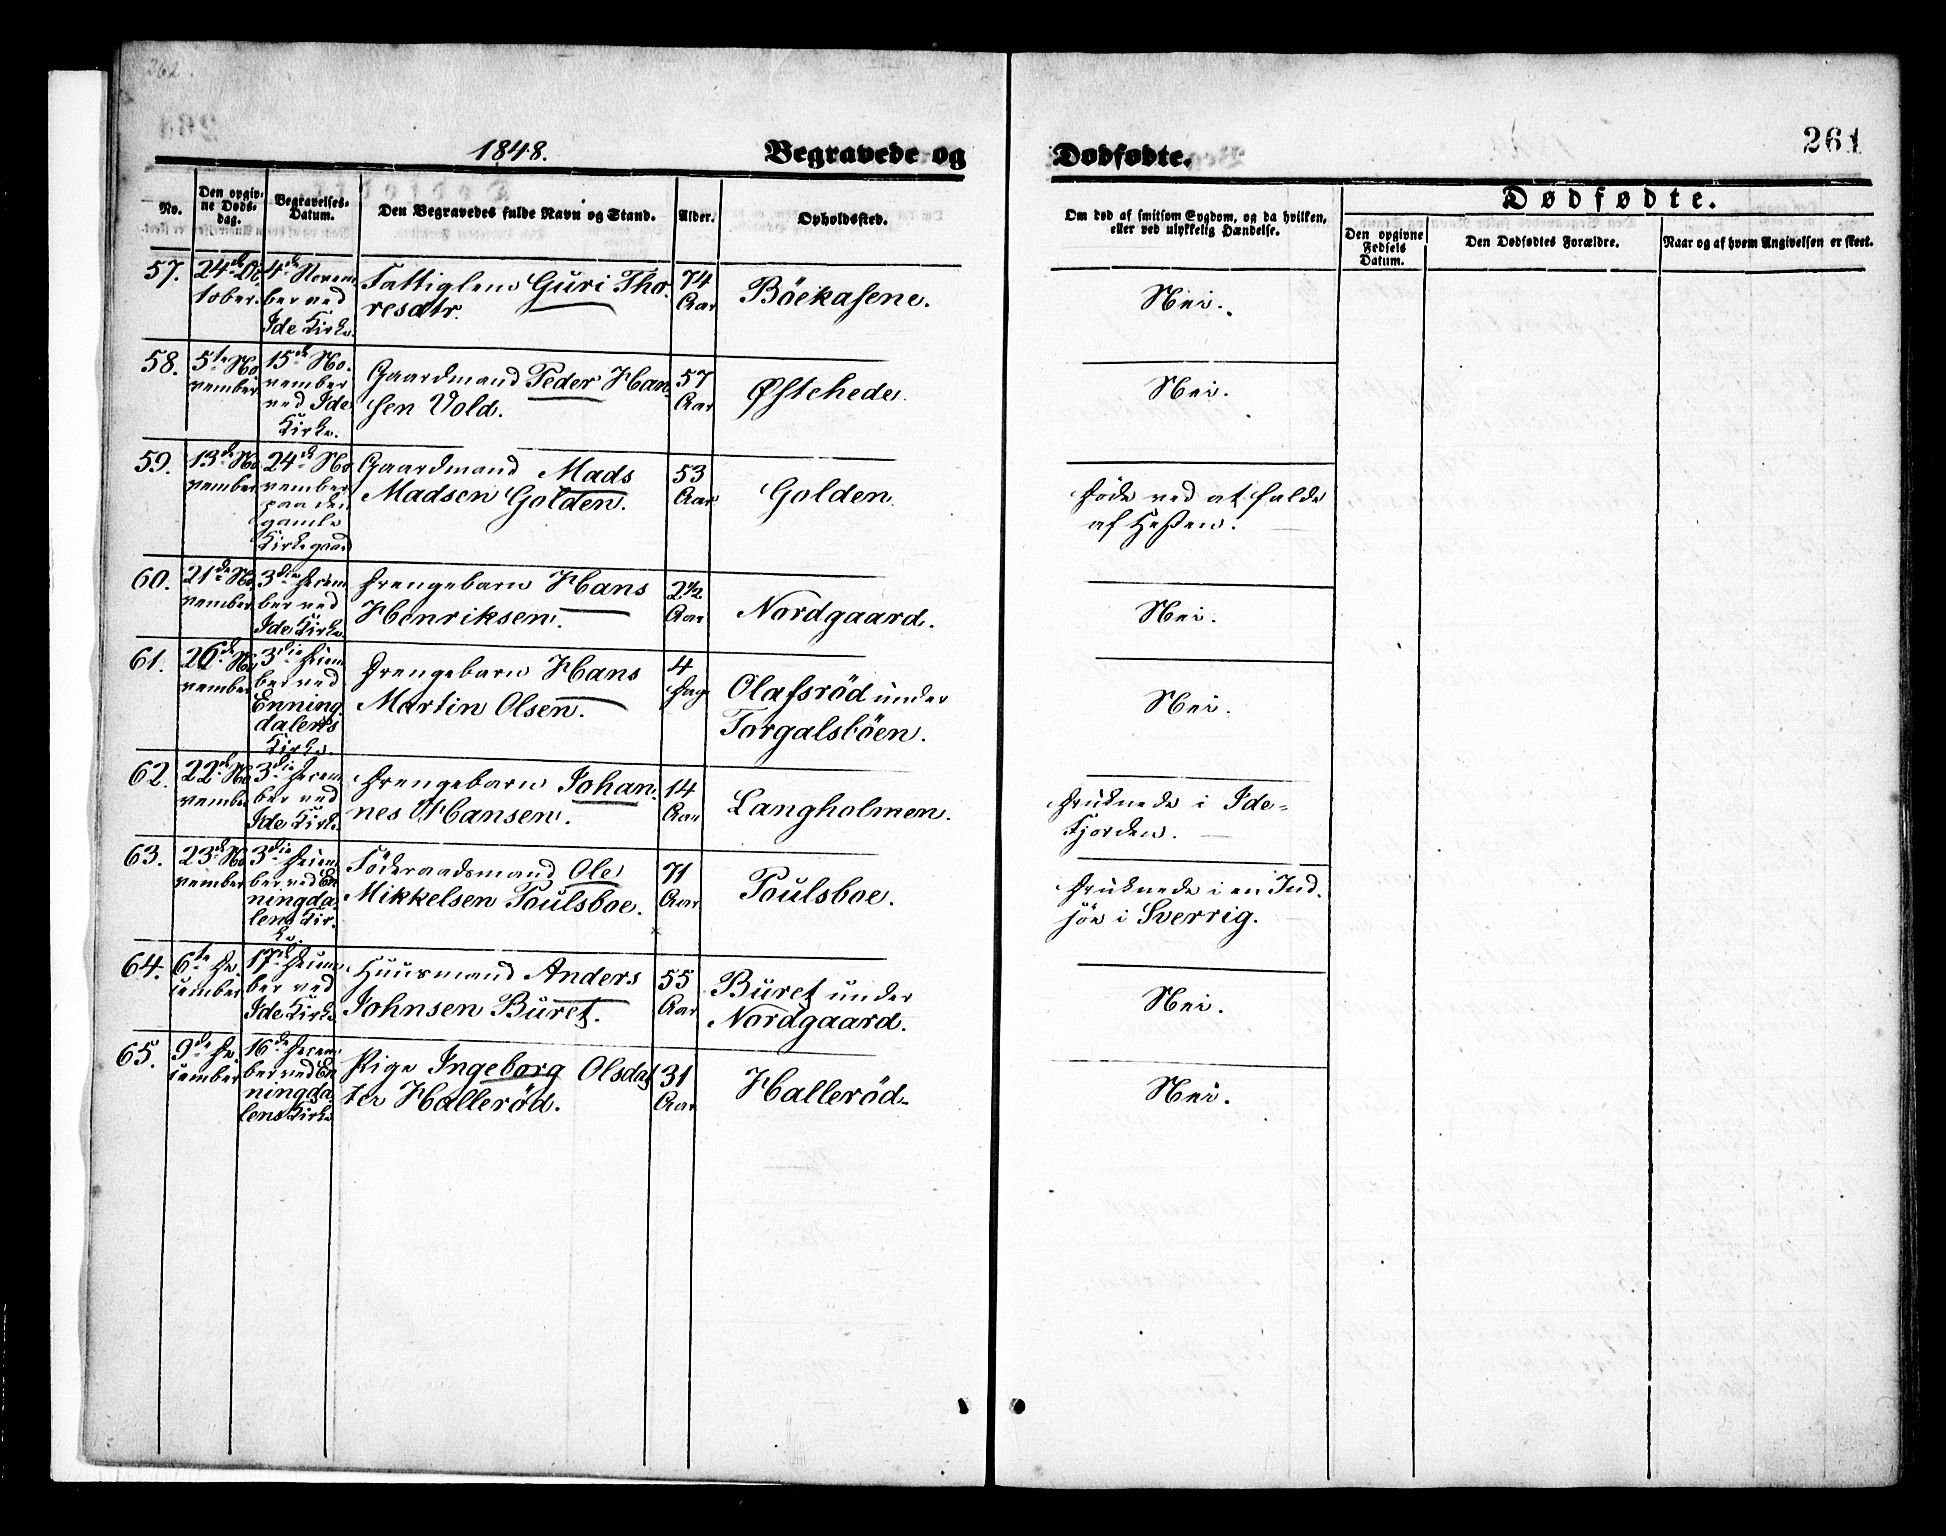 261
1848.
Begravede og
Dødfødte.
No.
Den opgiv-
ne Døds-
dag.
Begravelses-
Datum.
Den Begravedes fulde Navn og Stand.
Alder.
Opholdsted.
Om død af smitsom Sygdom, og da hvilken,
eller ved ulykkelig Hændelse.
Dødfødte.
Den opgivne
Fødsels
Datum.
Den Dødfødtes Forældre.
Naar og af hvem Angivelsen er skeet.
57.
24de Oc-
tober
4de Novem-
ber ved
Ide Kirke.
Fattiglem Guri Tho-
resdtr.
74
Aar
Böekasene.
Nei.
58.
5te No
vember
15de No-
vember
ved Ide
Kirke.
Gaardmand Peder Han-
sen Vold.
57
Aar
Østehede.
Nei.
59.
13de No
vember
24de No
vember
paa den
gamle
Kirkegaard
Gaardmand Mads
Madsen Golden.
53
Aar
Golden
Døde ved at falde
af Hesten.
60.
21de No
vember
3die Decem
ber ved
Ide Kirke
Drengebarn Hans
Henriksen.
2½
Aar
Nordgaard.
Nei.
61.
26de No
vember
3die Decem
ber ved
Enning
dalens
Kirke.
Drengebarn Hans
Martin Olsen.
4
Dage
Olafsröd under
Torgalsböen.
Nei.
62.
22de No
vember
3die Decem
ber ved
Ide Kirke
Drengebarn Johan-
nes Hansen.
14
Aar
Langholmen.
Druknede i Ide-
Fjorden.
63.
23de No
vember
3die Decem
ber ved En
ningda-
lens Kir-
ke.
Föderaadsmand Ole
Mikkelsen Poulsboe.
71
Aar
Poulsboe.
Druknede i en Ind-
sjöe i Sverrig.
64.
6te De-
cember
17de Decem
ber ved
Ide Kirke
Huusmand Anders
Johnsen Buret.
55
Aar
Buret under
Nordgaard.
Nei.
65.
9de De-
cember
16de Decem
ber ved En
ningda-
lens Kirke
Pige Ingeborg Olsdat
ter Halleröd.
31
Aar
Halleröd.
Nei.